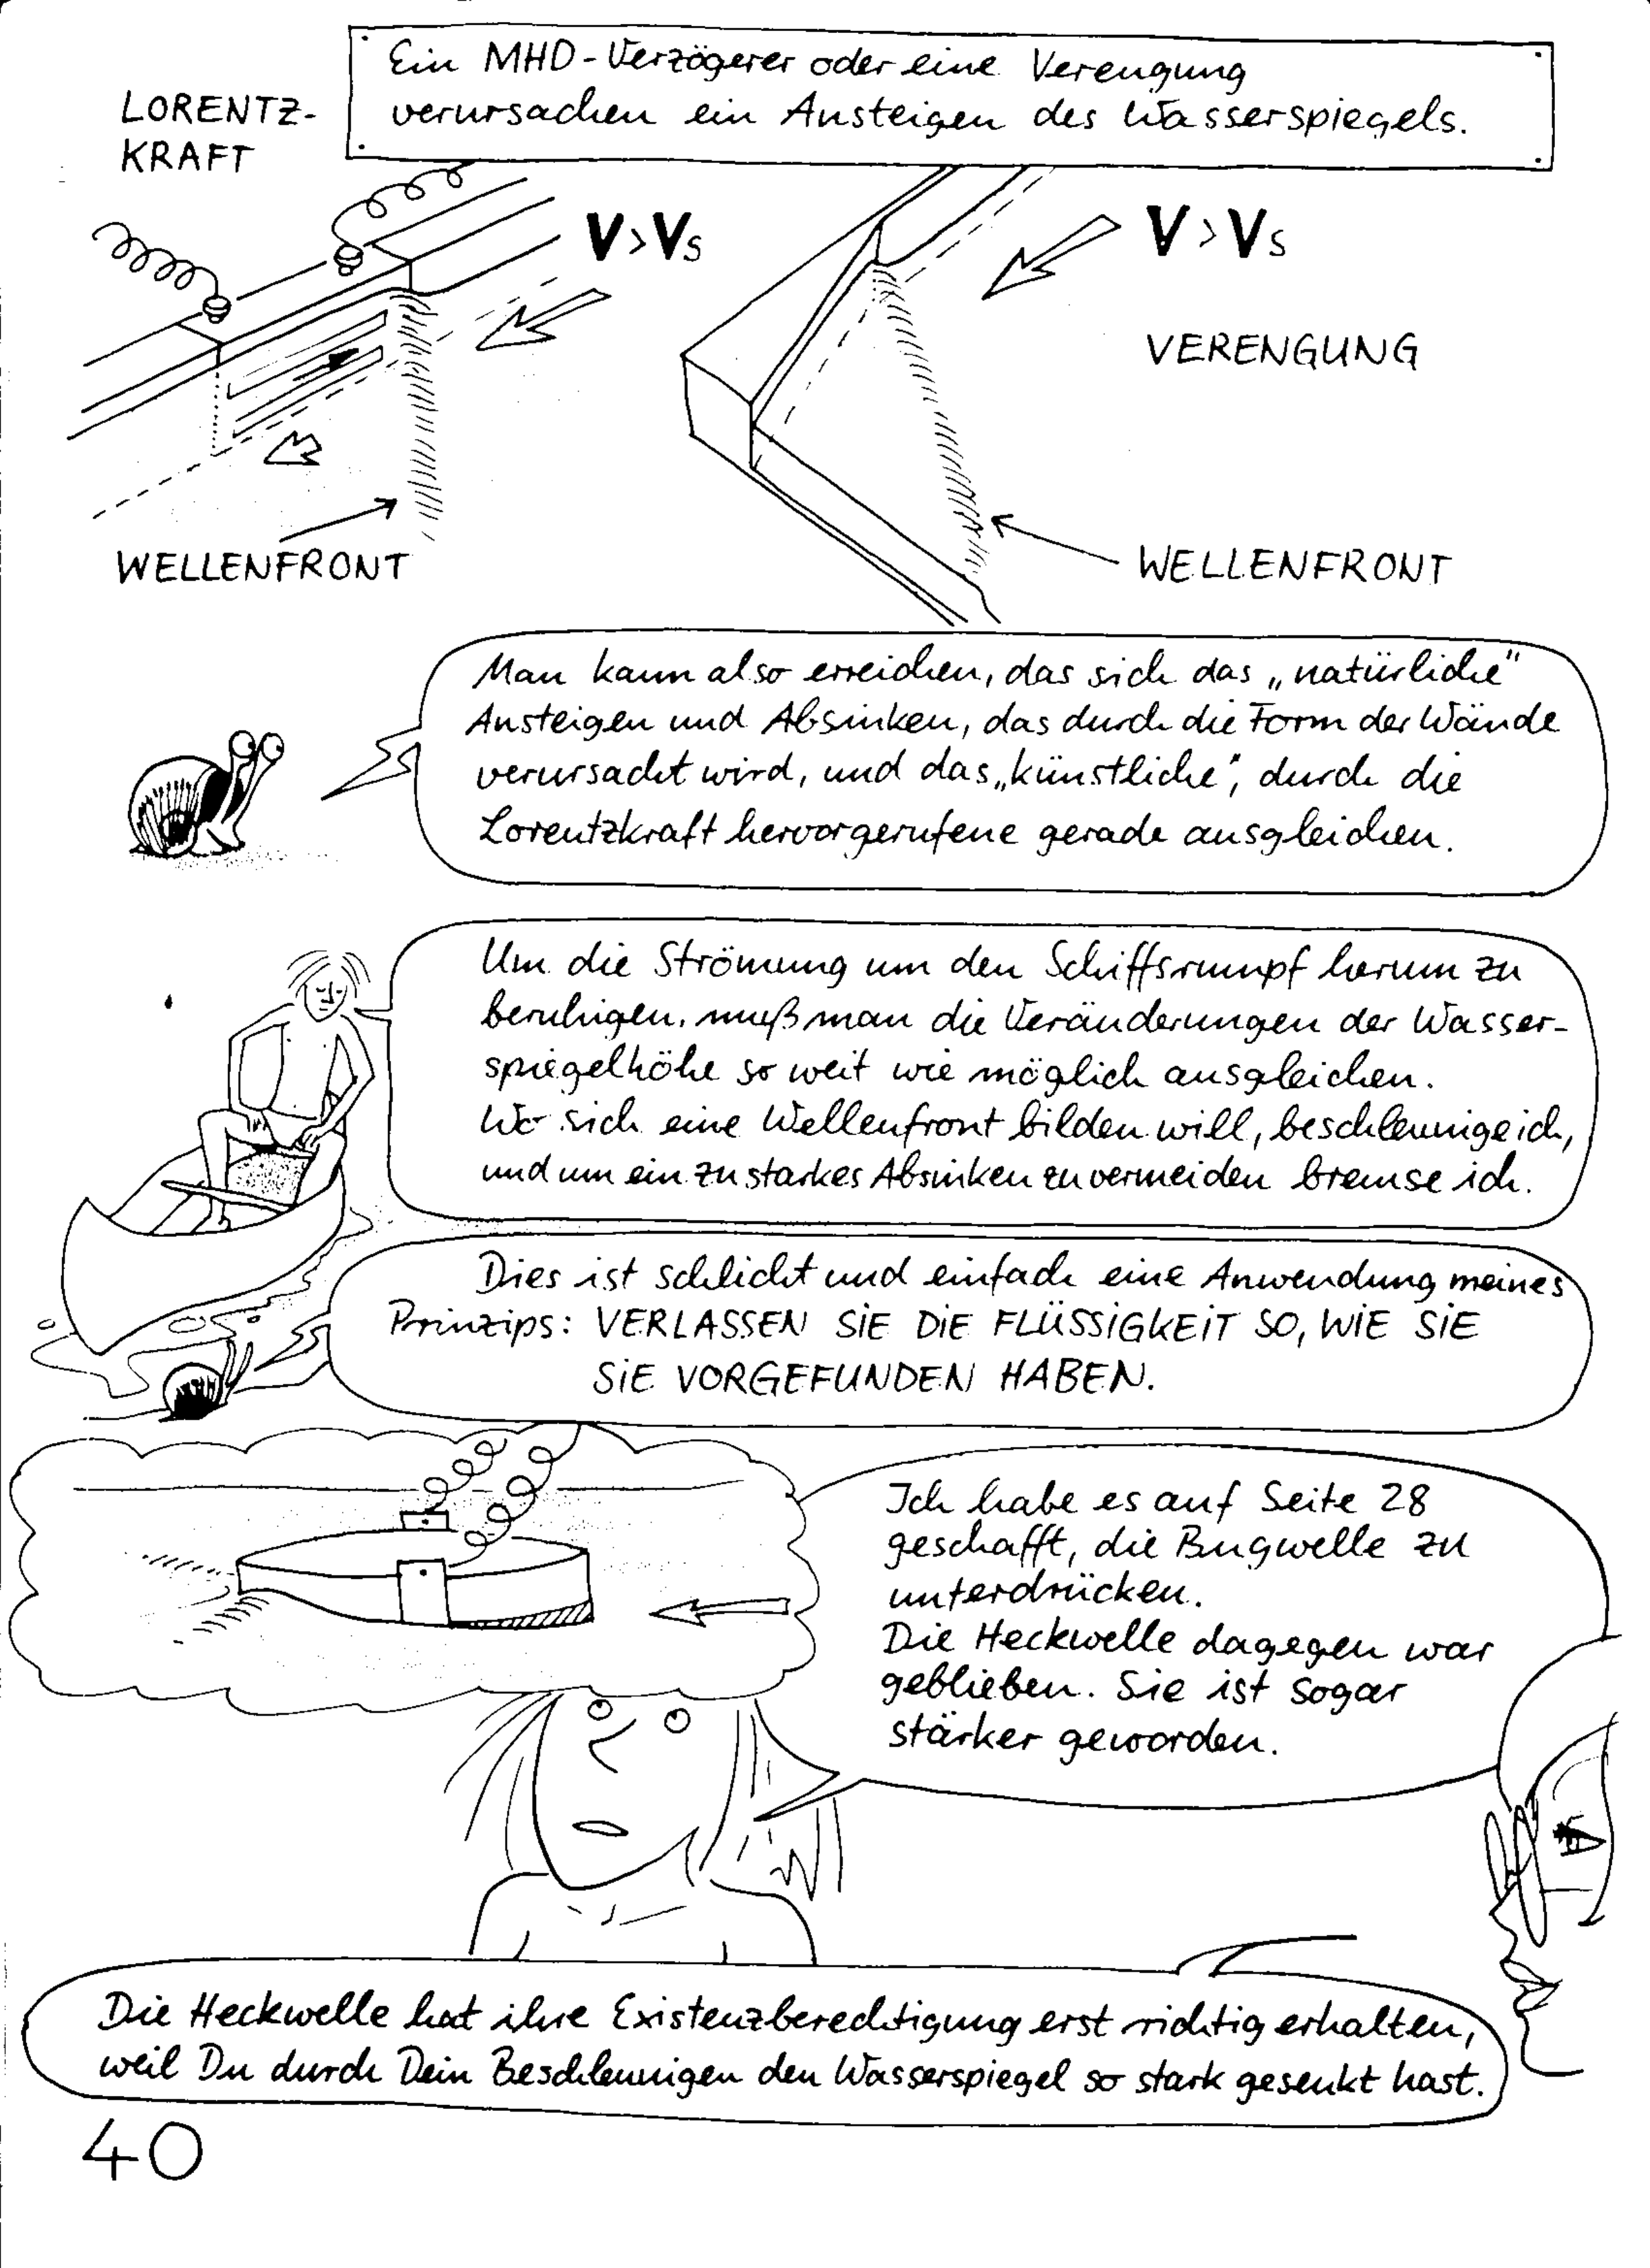 Ein MHD-Verzögerer oder eine Verengung
verursachen ein Ansteigen des Wasserspiegels.
LORENTZ-
KRAFT
V>Vs
V>Vs
VERENGUNG
WELLENFRONT
WELLENFRONT
Man kann also erreichen, das sich das „natürliche"
Ansteigen und Absinken, das durch die Form der Wände
verursacht wird, und das „künstliche", durch die
Lorentzkraft hervorgerufene gerade ausgleichen.
Um die Strömung um den Schiffsrumpf herum zu
beruhigen, muß man die Veränderungen der Wasser-
spiegelhöhe so weit wie möglich ausgleichen.
Wo sich eine Wellenfront bilden will, beschleunige ich,
und um ein zu starkes Absinken zu vermeiden bremse ich.
Dies ist schlicht und einfach eine Anwendung meines
Prinzips: VERLASSEN SiE DiE FLÜSSiGKEiT SO, WiE SiE
SiE VORGEFUNDEN HABEN.
Ich habe es auf Seite 28
geschafft, die Bugwelle zu
unterdrücken.
Die Heckwelle dagegen war
geblieben. Sie ist sogar
stärker geworden.
Die Heckwelle hat ihre Existenzberechtigung erst richtig erhalten,
weil Du durch Dein Beschleunigen den Wasserspiegel so stark gesenkt hast.
40